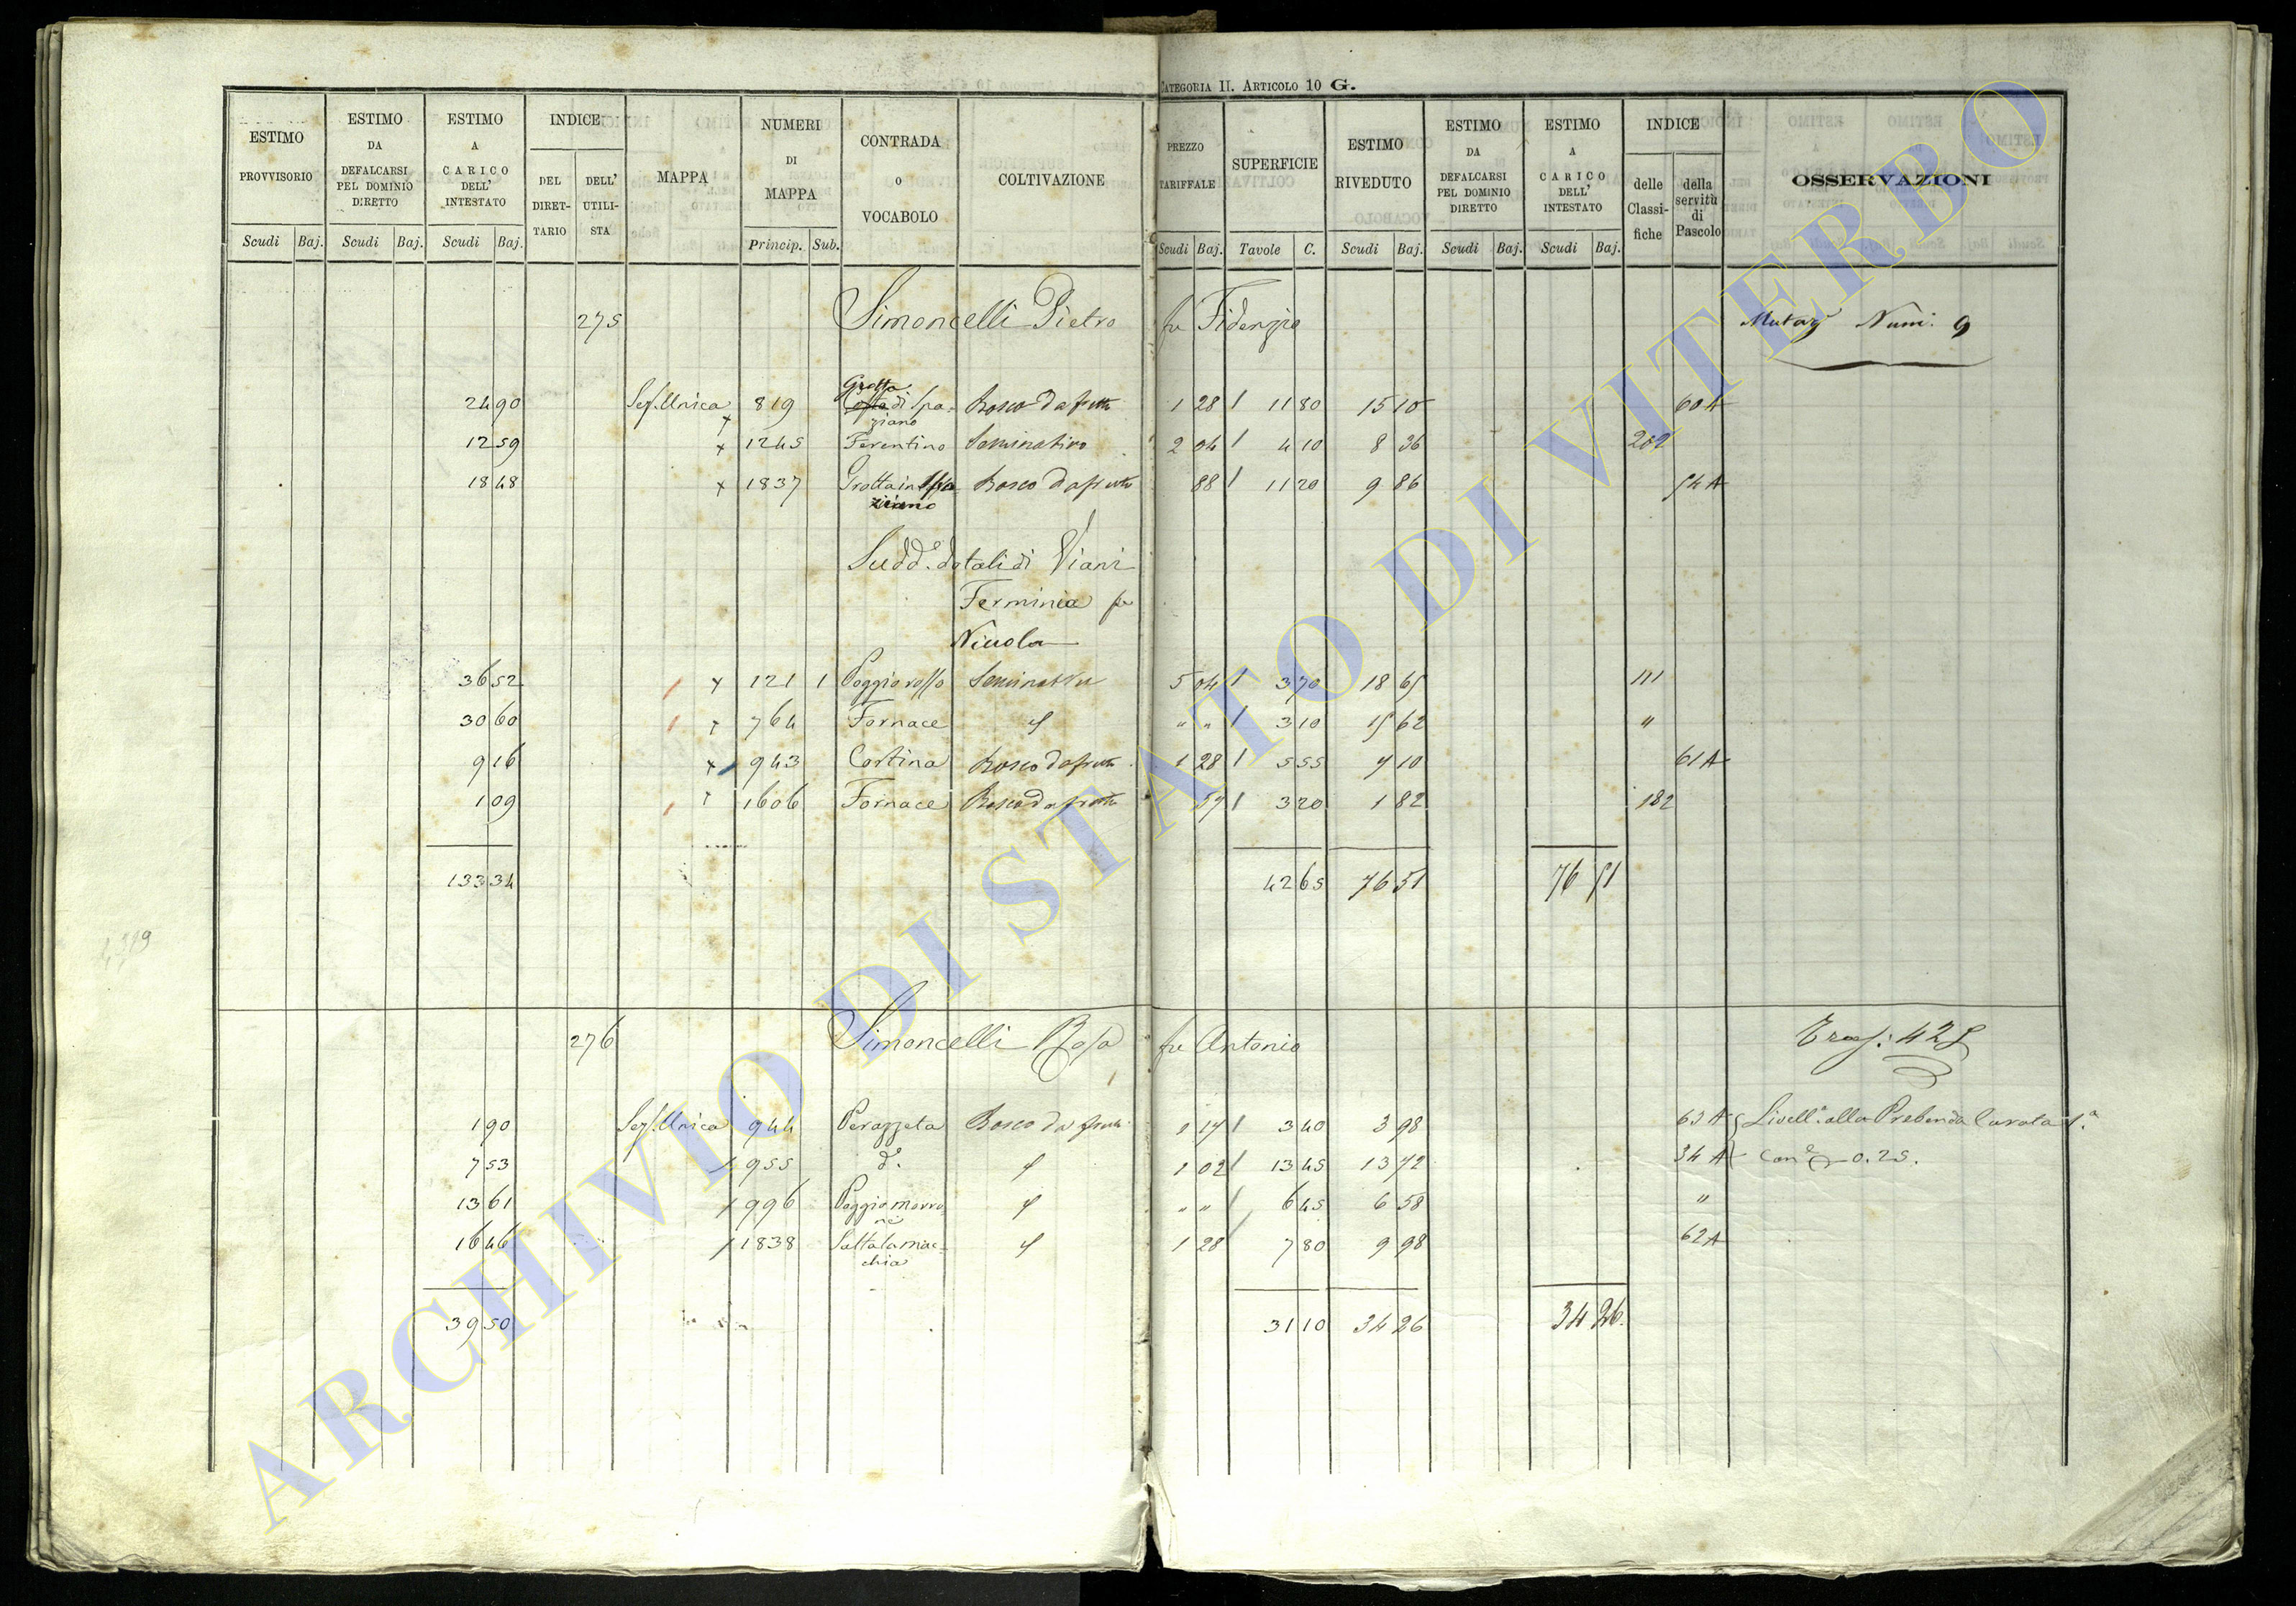 CATEGORIA II. ARTICOLO 10 G.
ESTIMO PROVVISORIO
ESTIMO DA DEFALCARSI PEL DOMINIO DIRETTO
ESTIMO A CARICO DELL' INTESTATO
INDICE
DEL DIRETTARIO
DELL' UTILISTA
MAPPA
NUMERI DI MAPPA
CONTRADA O VOCABOLO
COLTIVAZIONE
PREZZO TARIFFALE
SUPERFICIE
ESTIMO RIVEDUTO
ESTIMO DA DEFALCARSI PEL DOMINIO DIRETTO
ESTIMO A CARICO DELL' INTESTATO
INDICE
delle Classifiche
della servitù di Pascolo
OSSERVAZIONI
Scudi Baj. Scudi Baj. Scudi Baj. Princip. Sub. Scudi Baj. Tavole C. Scudi Baj. Scudi Baj. Scudi Baj.
275 Simoncelli Pietro fu Fidenzio Num. 9
24 90 Sez. Unica 819 Grotta di Spaziano Bosco da frutto 1 28 11 80 15 10 60 A
12 59 1245 Ferentino Seminativo 2 04 4 10 8 36 202
18 48 1837 Bosco da frutto 88 11 20 9 86 54 A
Sudd.º dotali di Viani
Ferminia fu
Nicola
36 52 121 1 Poggio rosso Seminativo 5 04 3 70 18 65 111
30 60 764 Fornace " " 3 10 15 62 "
9 16 943 Cortina Bosco da frutto 1 28 5 55 7 10 61 A
1 09 1606 Fornace Bosco da frutto 57 3 20 1 82 182
133 34 42 65 76 51 76 51
276 Simoncelli Rosa fu Antonio 425
1 90 Sez. Unica 944 Perazzeta Bosco da frutto 1 17 3 40 3 98 63 A Livell.º alla Prebenda Curata 1.ª
7 53 955 d.º 1 02 13 45 13 72 34 A 0.25.
13 61 996 Poggio morrone " " 6 45 6 58 "
16 46 1838 Saltalamacchia 1 28 7 80 9 98 62 A
39 50 31 10 34 26 34 26
ARCHIVIO DI STATO DI VITERBO